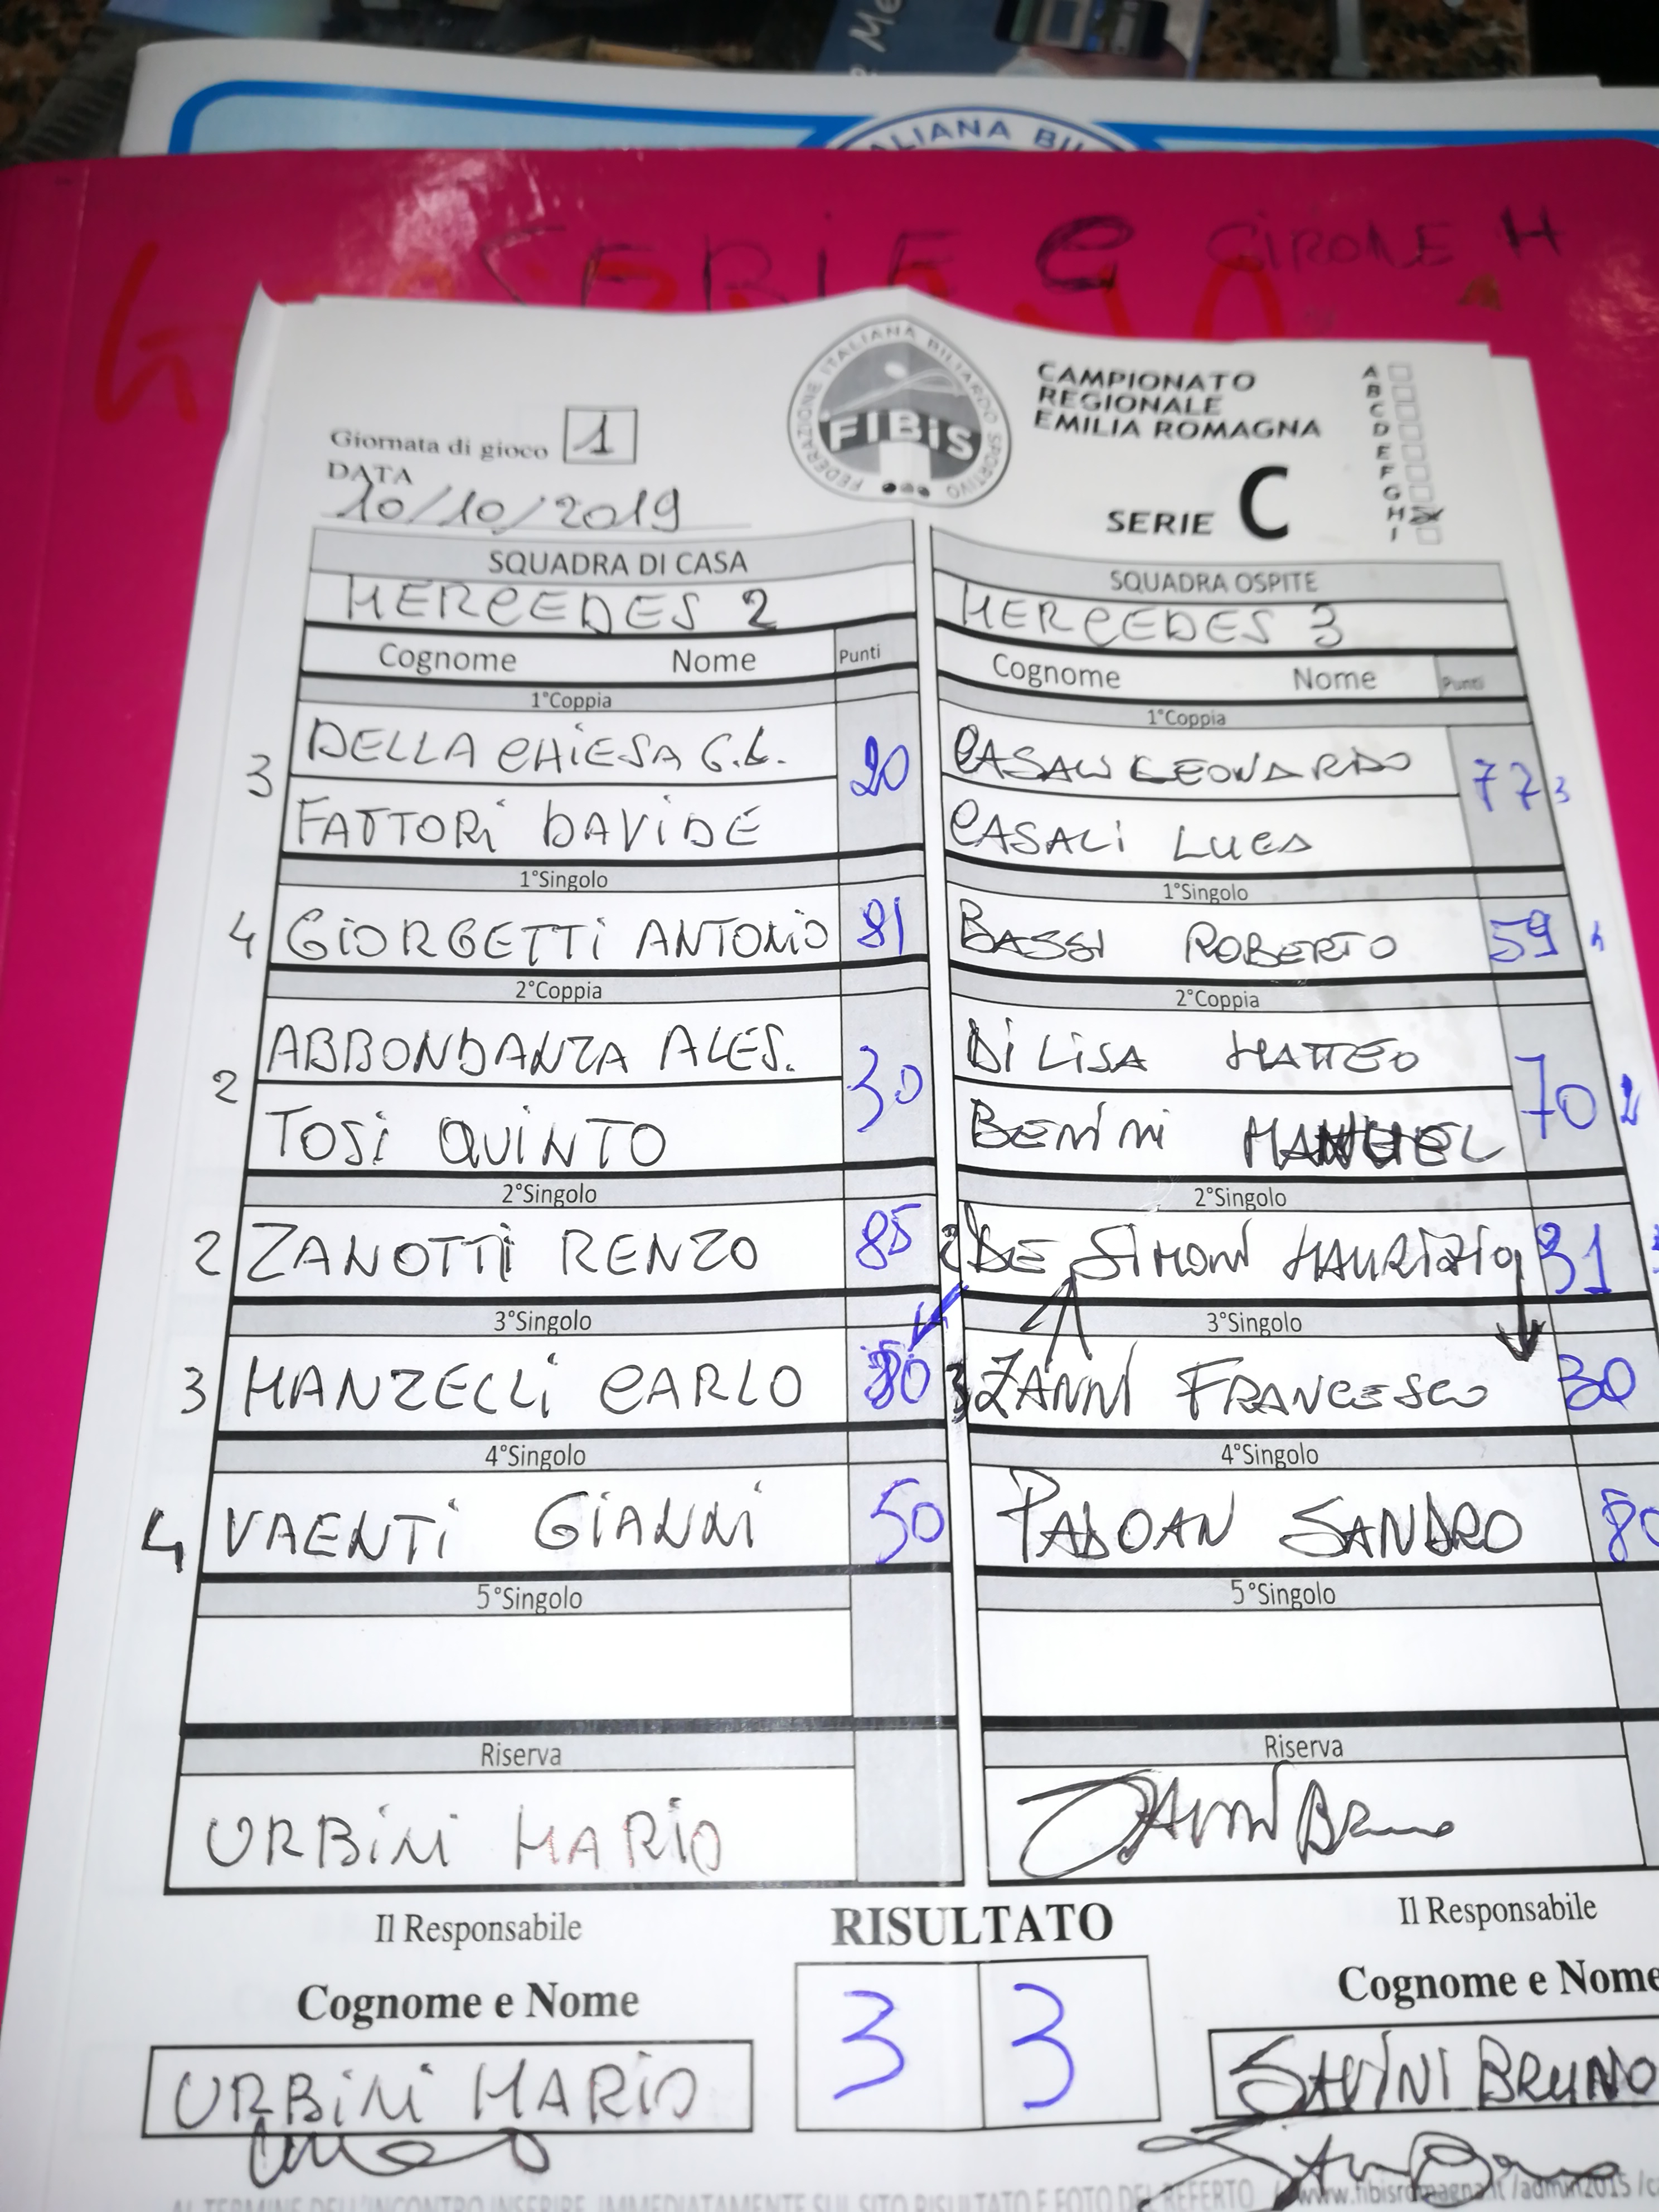 R Me
ALIANA BIL
SERIE C GIRONE H
Giornata di gioco 1
DATA
10/10/2019
FEDERAZIONE ITALIANA BILIARDO SPORTIVO
FIBiS
CAMPIONATO
REGIONALE
EMILIA ROMAGNA
SERIE C
A
B
C
D
E
F
G
H
I
SQUADRA DI CASA
MERCEDES 2
Cognome Nome Punti
1°Coppia
3 DELLA CHIESA G.L. 20
FATTORI DAVIDE
1°Singolo
4 GIORGETTI ANTONIO 81
2°Coppia
ABBONDANZA ALES. 30
2
TOSI QUINTO
2°Singolo
2 ZANOTTI RENZO 85
3°Singolo
3 MANZELLI CARLO 80
4°Singolo
4 VAENTI GIANNI 50
5°Singolo
Riserva
URBINI MARIO
SQUADRA OSPITE
MERCEDES 3
Cognome Nome Punti
1°Coppia
CASALI LEONARDO 77 3
CASALI LUCA
1°Singolo
BASSI ROBERTO 59 4
2°Coppia
DI LISA MATTEO 70 2
BENINI MANUEL
2°Singolo
2 DE SIMONI MAURIZIO 31
3°Singolo
3 ZANNI FRANCESCO 30
4°Singolo
PADOAN SANDRO 80
5°Singolo
Riserva
Bruno
Il Responsabile
Cognome e Nome
URBINI MARIO
RISULTATO
3 3
Il Responsabile
Cognome e Nome
SAVINI BRUNO
AL TERMINE DELL'INCONTRO INSERIRE IMMEDIATAMENTE SUL SITO RISULTATO E FOTO DEL REFERTO www.fibisromagna.it/admin2015/c